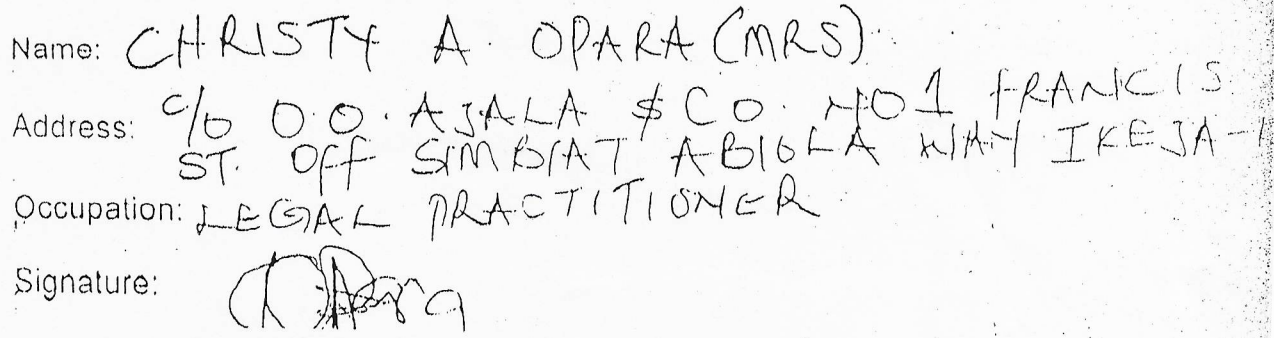 Name: CHRISTY A. OPARA (MRS)
Address: c/o O.O. AJALA $ CO. NO 1 FRANCIS
ST. OFF SIMBIAT ABIOLA WAY IKEJA -
Occupation: LEGAL PRACTITIONER
Signature: